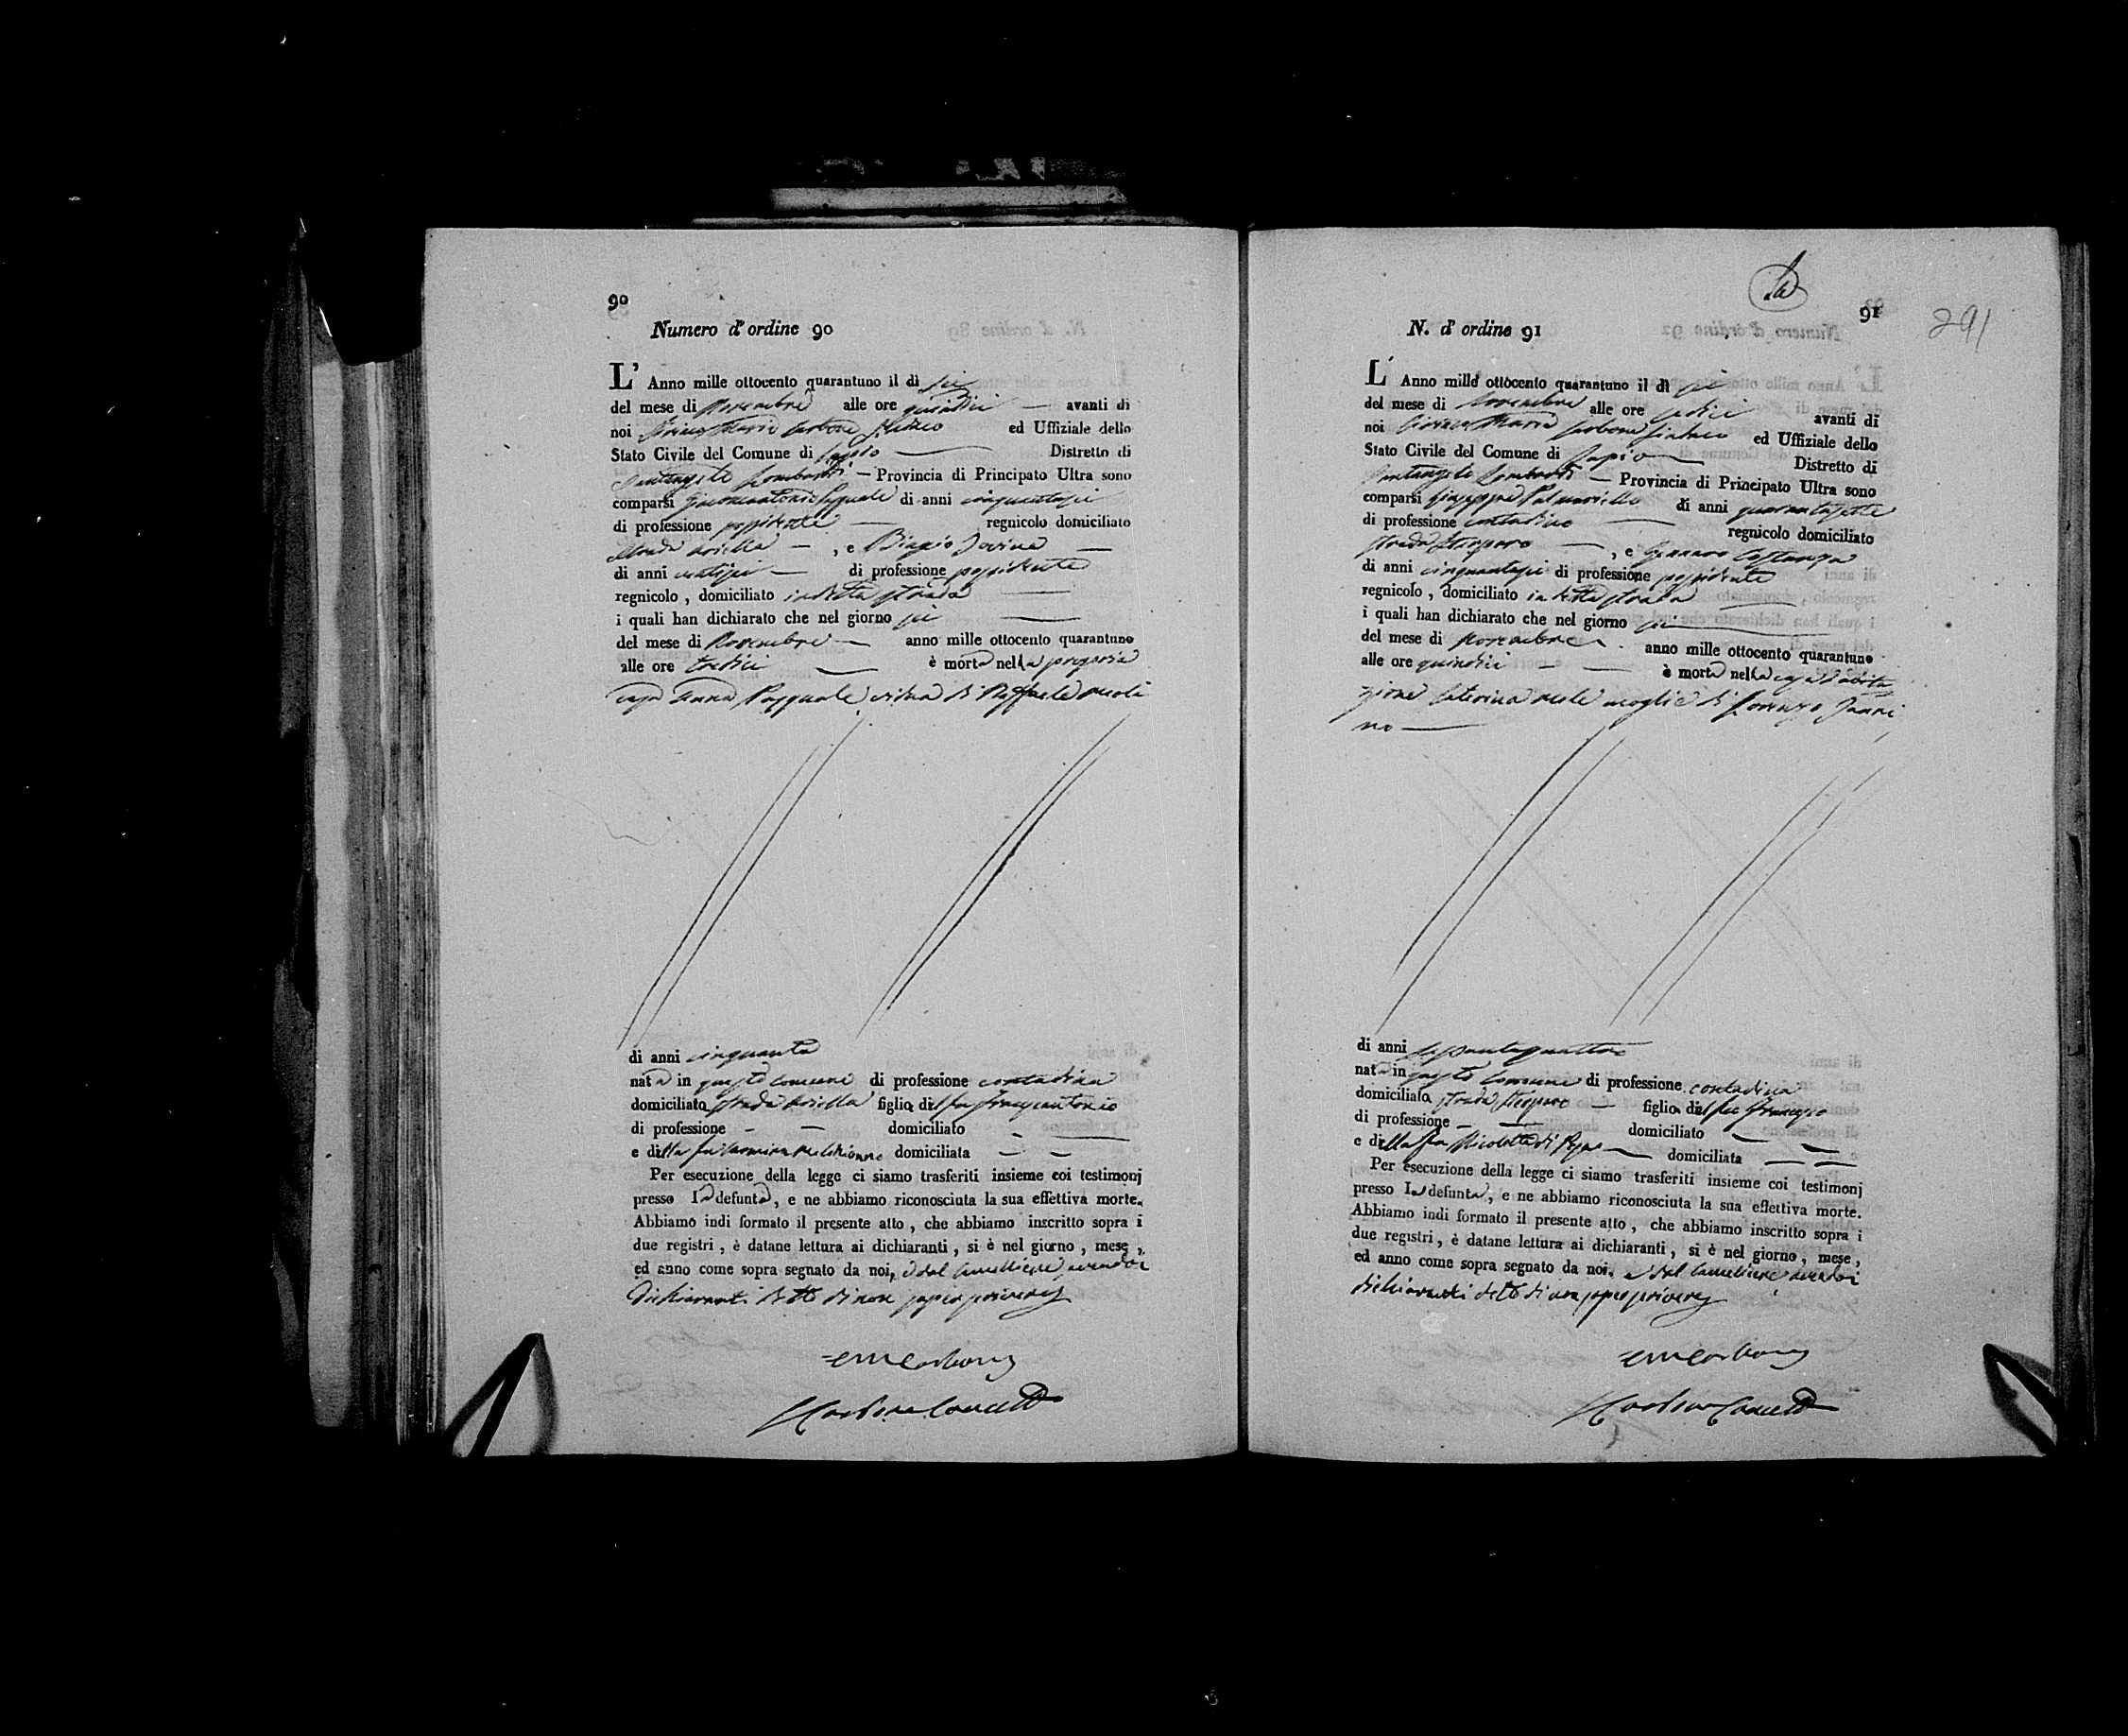 90
Numero d' ordine 90
L' Anno mille ottocento quarantuno il dì sei
del mese di Novembre alle ore quindici avanti di
noi Maria Carbone Sindaco ed Uffiziale dello
Stato Civile del Comune di Distretto di
Santangelo Lombardi Provincia di Principato Ultra sono
comparsi di anni cinquantasei
di professione possidente regnicolo domiciliato
strada , e Biagio Iovine
di anni di professione possidente
regnicolo , domiciliato in detta strada
i quali han dichiarato che nel giorno sei
del mese di Novembre anno mille ottocento quarantuno
alle ore tredici è morta nella propria
casa Anna Pasquale vidua di Raffaele Meoli
di anni cinquanta
nata in questo comune di professione contadina
domiciliata strada figlia del fu
di professione domiciliato
e della fu domiciliata
Per esecuzione della legge ci siamo trasferiti insieme coi testimonj
presso la defunta, e ne abbiamo riconosciuta la sua effettiva morte.
Abbiamo indi formato il presente atto , che abbiamo inscritto sopra i
due registri , è datane lettura ai dichiaranti , si è nel giorno , mese ,
ed anno come sopra segnato da noi, e dal Cancelliere avendo i
dichiaranti detto di non saper scrivere
Carbone
Carbone
91
291
N. d' ordine 91
L' Anno mille ottocento quarantuno il dì sei
del mese di Novembre alle ore sedici avanti di
noi Maria Carbone Sindaco ed Uffiziale dello
Stato Civile del Comune di Distretto di
Santangelo Lombardi Provincia di Principato Ultra sono
comparsi Giuseppe Palmariello di anni quarantasette
di professione contadino regnicolo domiciliato
strada , e Gennaro Costanza
di anni cinquantasei di professione possidente
regnicolo , domiciliato in detta strada
i quali han dichiarato che nel giorno sei
del mese di Novembre anno mille ottocento quarantuno
alle ore quindici è morta nella casa d'abita
zione Caterina Mele moglie di Lorenzo Ianni
no
di anni sessantaquattro
nata in questo Comune di professione contadina
domiciliata strada figlia del fu Francesco
di professione domiciliato
e della fu Nicoletta di domiciliata
Per esecuzione della legge ci siamo trasferiti insieme coi testimonj
presso la defunta, e ne abbiamo riconosciuta la sua effettiva morte.
Abbiamo indi formato il presente atto , che abbiamo inscritto sopra i
due registri , è datane lettura ai dichiaranti , si è nel giorno , mese ,
ed anno come sopra segnato da noi, e dal Cancelliere avendo i
dichiaranti detto di non saper scrivere
Carbone
Carbone